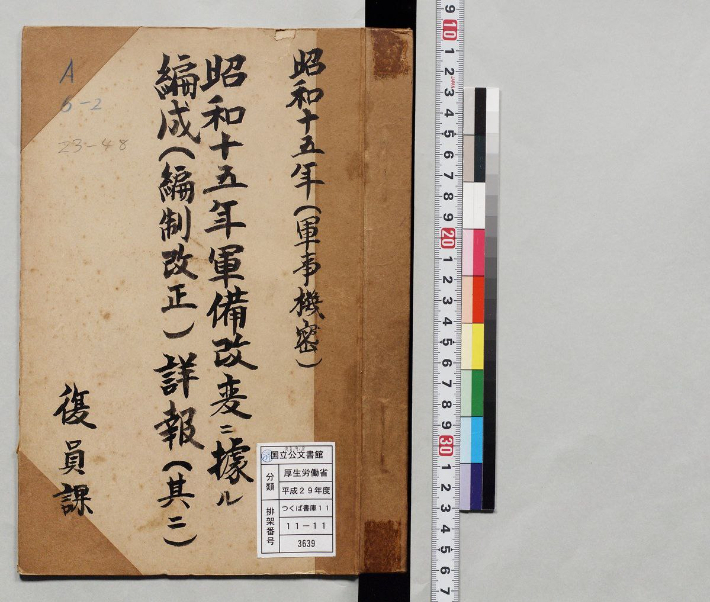 昭和十五年(軍事機密)
昭和十五年軍備改変ニ據ル
編成(編制改正)詳報(其二)
復員課
A
6-2
23-48
国立公文書館
分類
厚生労働省
平成29年度
排架番号
つくば書庫11
11-11
3639
9 10 1 2 3 4 5 6 7 8 9 20 1 2 3 4 5 6 7 8 9 30 1 2 3 4 5 6 7